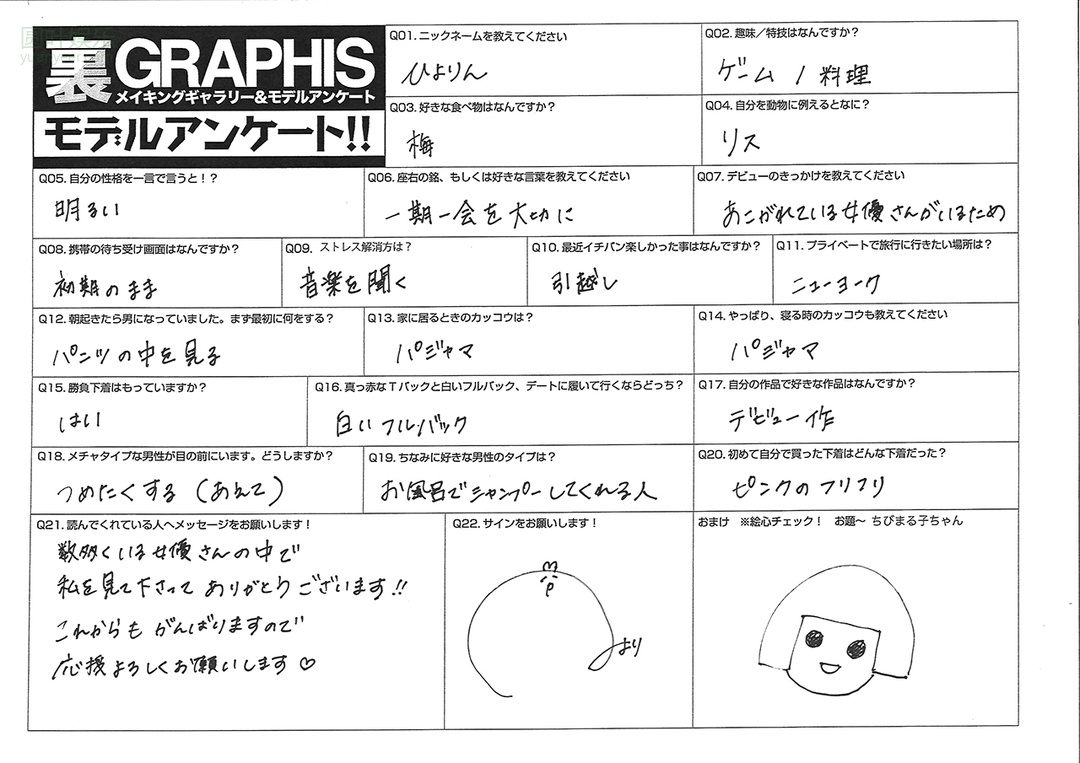 裏GRAPHIS
メイキングギャラリー&モデルアンケート
モデルアンケート!!
Q01. ニックネームを教えてください
ひよりん
Q02. 趣味／特技はなんですか？
ゲーム / 料理
Q03. 好きな食べ物はなんですか？
梅
Q04. 自分を動物に例えるとなに？
リス
Q05. 自分の性格を一言で言うと！？
明るい
Q06. 座右の銘、もしくは好きな言葉を教えてください
一期一会を大切に
Q07. デビューのきっかけを教えてください
あこがれている女優さんがいるため
Q08. 携帯の待ち受け画面はなんですか？
初期のまま
Q09. ストレス解消方は？
音楽を聞く
Q10. 最近イチバン楽しかった事はなんですか？
引越し
Q11. プライベートで旅行に行きたい場所は？
ニューヨーク
Q12. 朝起きたら男になっていました。まず最初に何をする？
パンツの中を見る
Q13. 家に居るときのカッコウは？
パジャマ
Q14. やっぱり、寝る時のカッコウも教えてください
パジャマ
Q15. 勝負下着はもっていますか？
はい
Q16. 真っ赤なTバックと白いフルバック、デートに履いて行くならどっち？
白いフルバック
Q17. 自分の作品で好きな作品はなんですか？
デビュー作
Q18. メチャタイプな男性が目の前にいます。どうしますか？
つめたくする (あえて)
Q19. ちなみに好きな男性のタイプは？
お風呂でシャンプーしてくれる人
Q20. 初めて自分で買った下着はどんな下着だった？
ピンクのフリフリ
Q21. 読んでくれている人へメッセージをお願いします！
数多くいる女優さんの中で
私を見て下さってありがとうございます!!
これからもがんばりますので
応援よろしくお願いします♡
Q22. サインをお願いします！
より
おまけ ※絵心チェック！ お題～ ちびまる子ちゃん